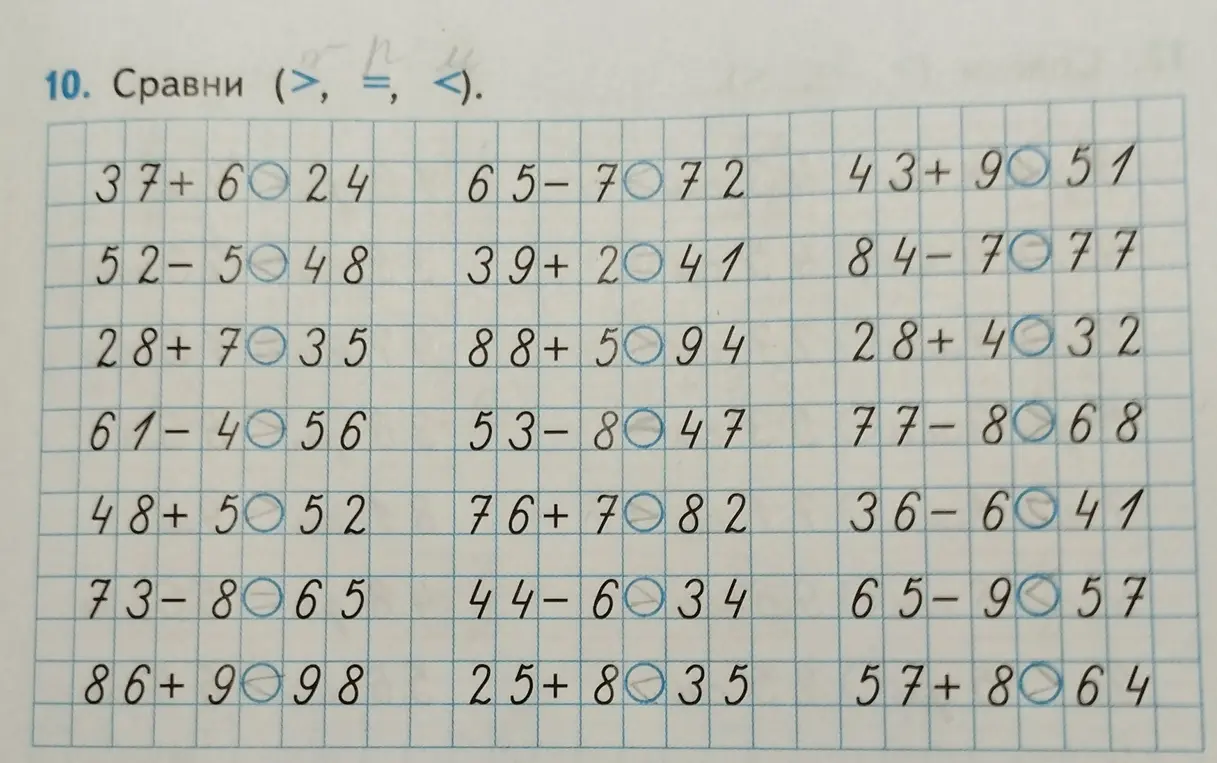 10. Сравни (>, =, <).
37+6○24 65-7○72 43+9○51
52-5○48 39+2○41 84-7○77
28+7○35 88+5○94 28+4○32
61-4○56 53-8○47 77-8○68
48+5○52 76+7○82 36-6○41
73-8○65 44-6○34 65-9○57
86+9○98 25+8○35 57+8○64